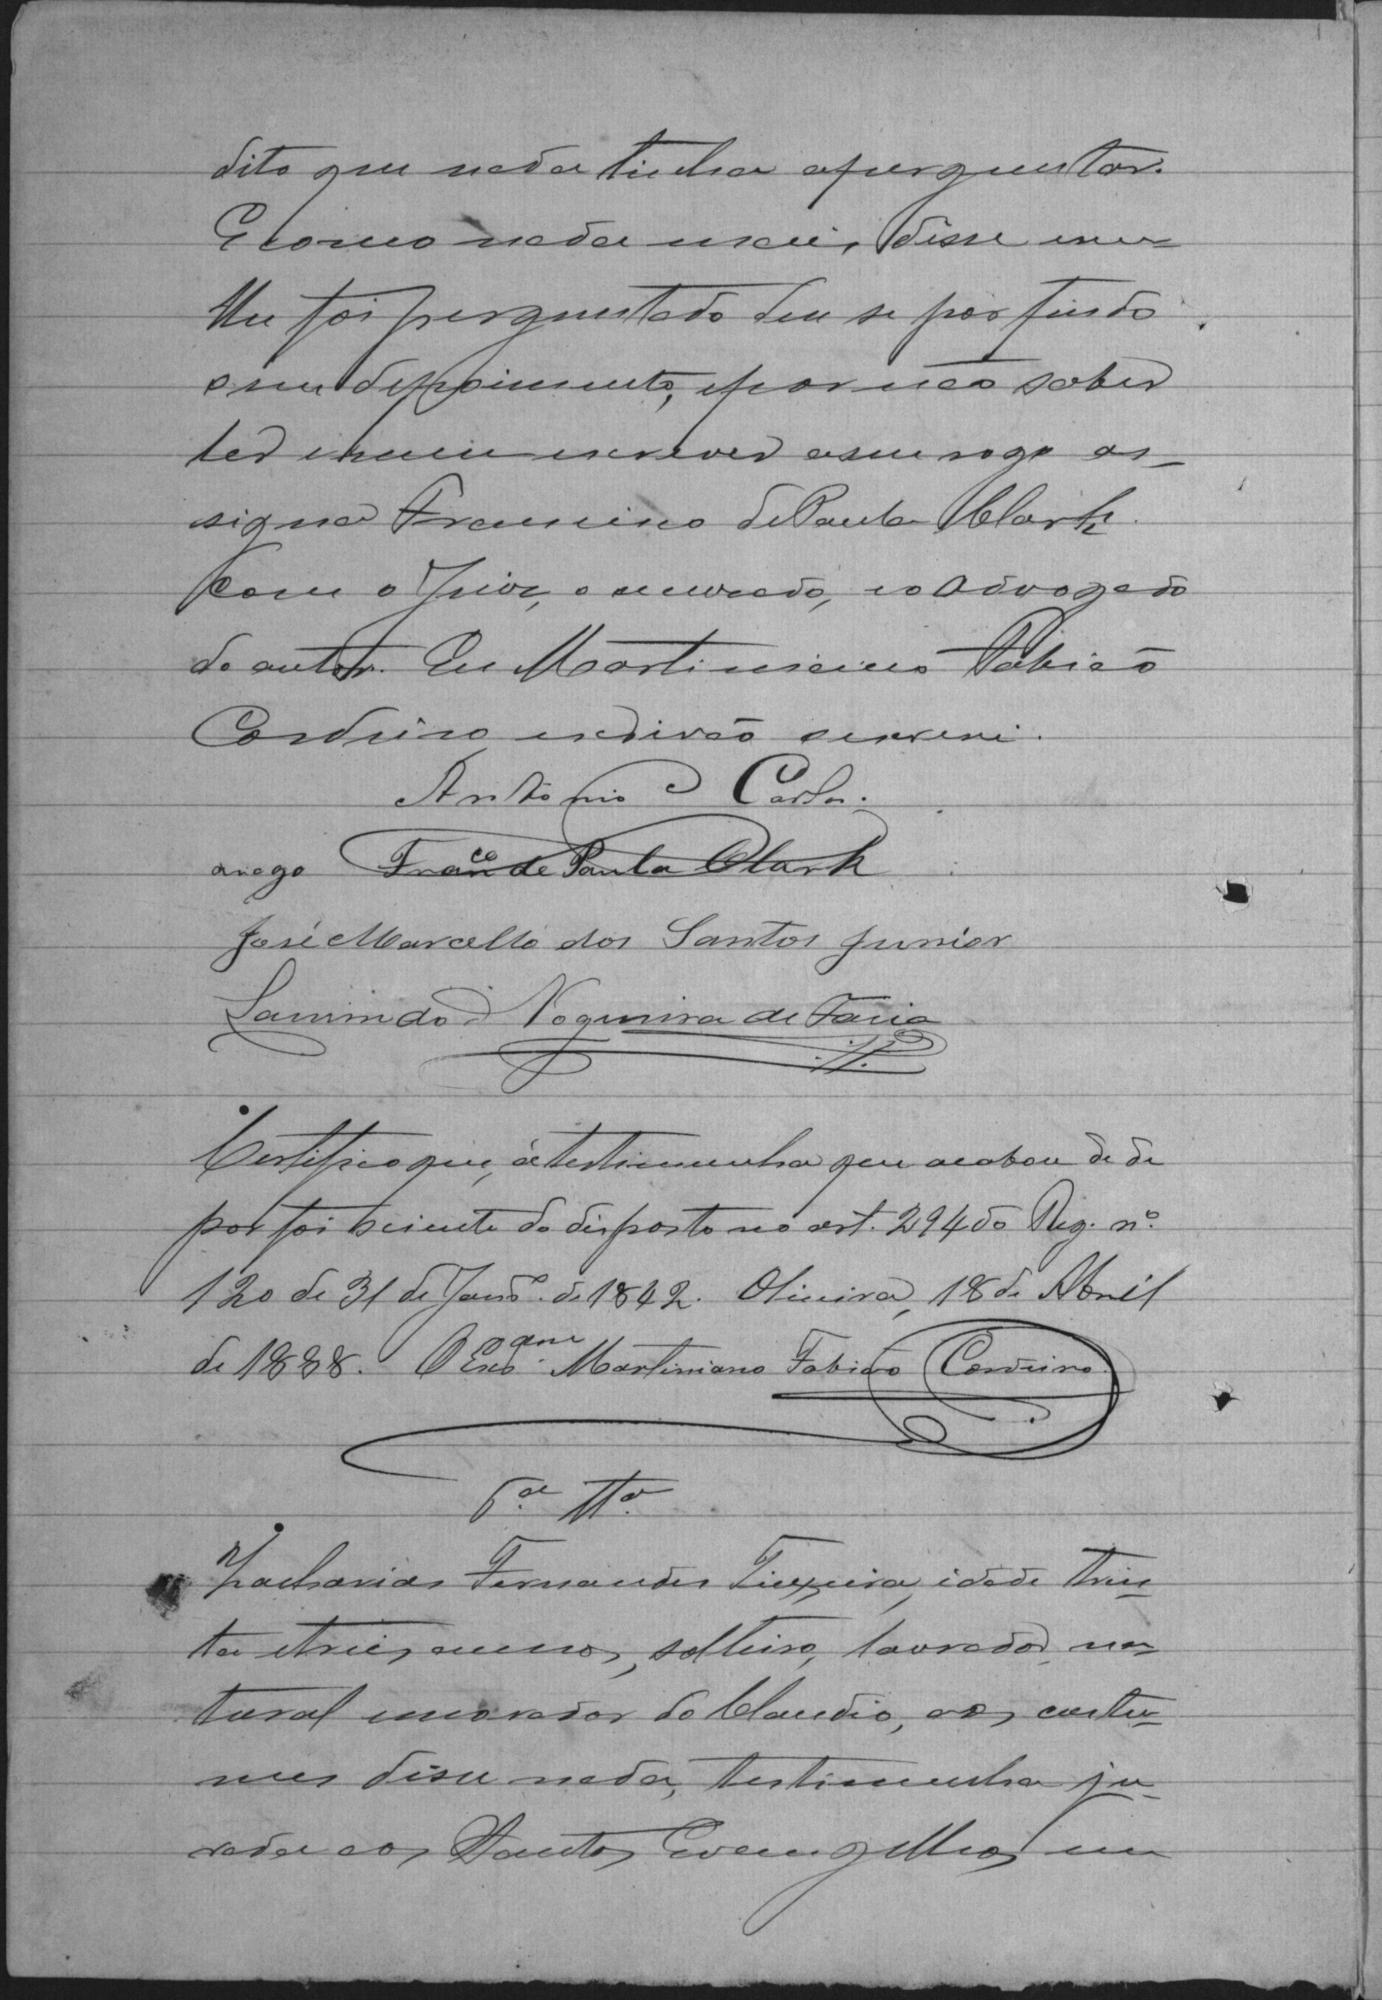 dito que nada tinha a perguntar.
E como nada mais disse nem
lhe foi perguntado deu se por findo
o seu depoimento, e por não saber
ler e nem escrever a seu rogo as-
signa Francisco de Paula Clark
com o Juiz, o accusado, e o advogado
do autor. Eu Martiniano Fabião
Cordeiro, escrivão o escrevi.
Antonio Carlos.
arogo Fran.co de Paula Clark
José Marcello dos Santos Junior
Nogueira de Faria
Certifico que, a testimunha que acabou de de
por foi sciente do disposto no art. 294 do Reg. nº
120 de 31 de Janrº. de 1842. Oliveira, 18 de Abril
de 1888. O Martiniano Fabião Cordeiro
6.a Tta.
Zacharias Fernandes Teixeira, idade trin-
ta e tres annos, solteiro, lavrador, na-
tural e morador do Claudio, aos costu-
mes disse nada, testimunha ju-
rada aos Santos Evangelhos em